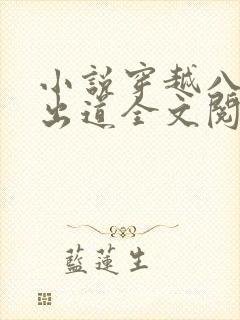 小說穿越八
出道全文閱
藍蓮生